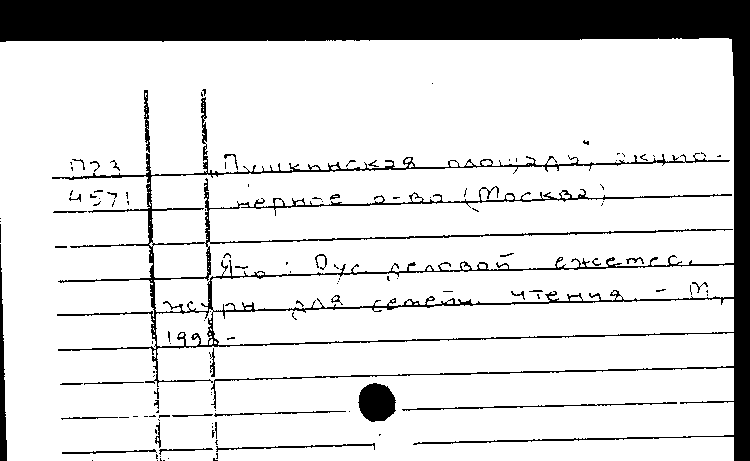 П23 „Пушкинская площадь", акцио-
4571 нерное о-во (Москва)
Ять: Рус. деловой ежемес.
журн. для семейн. чтения. - М.,
1998-